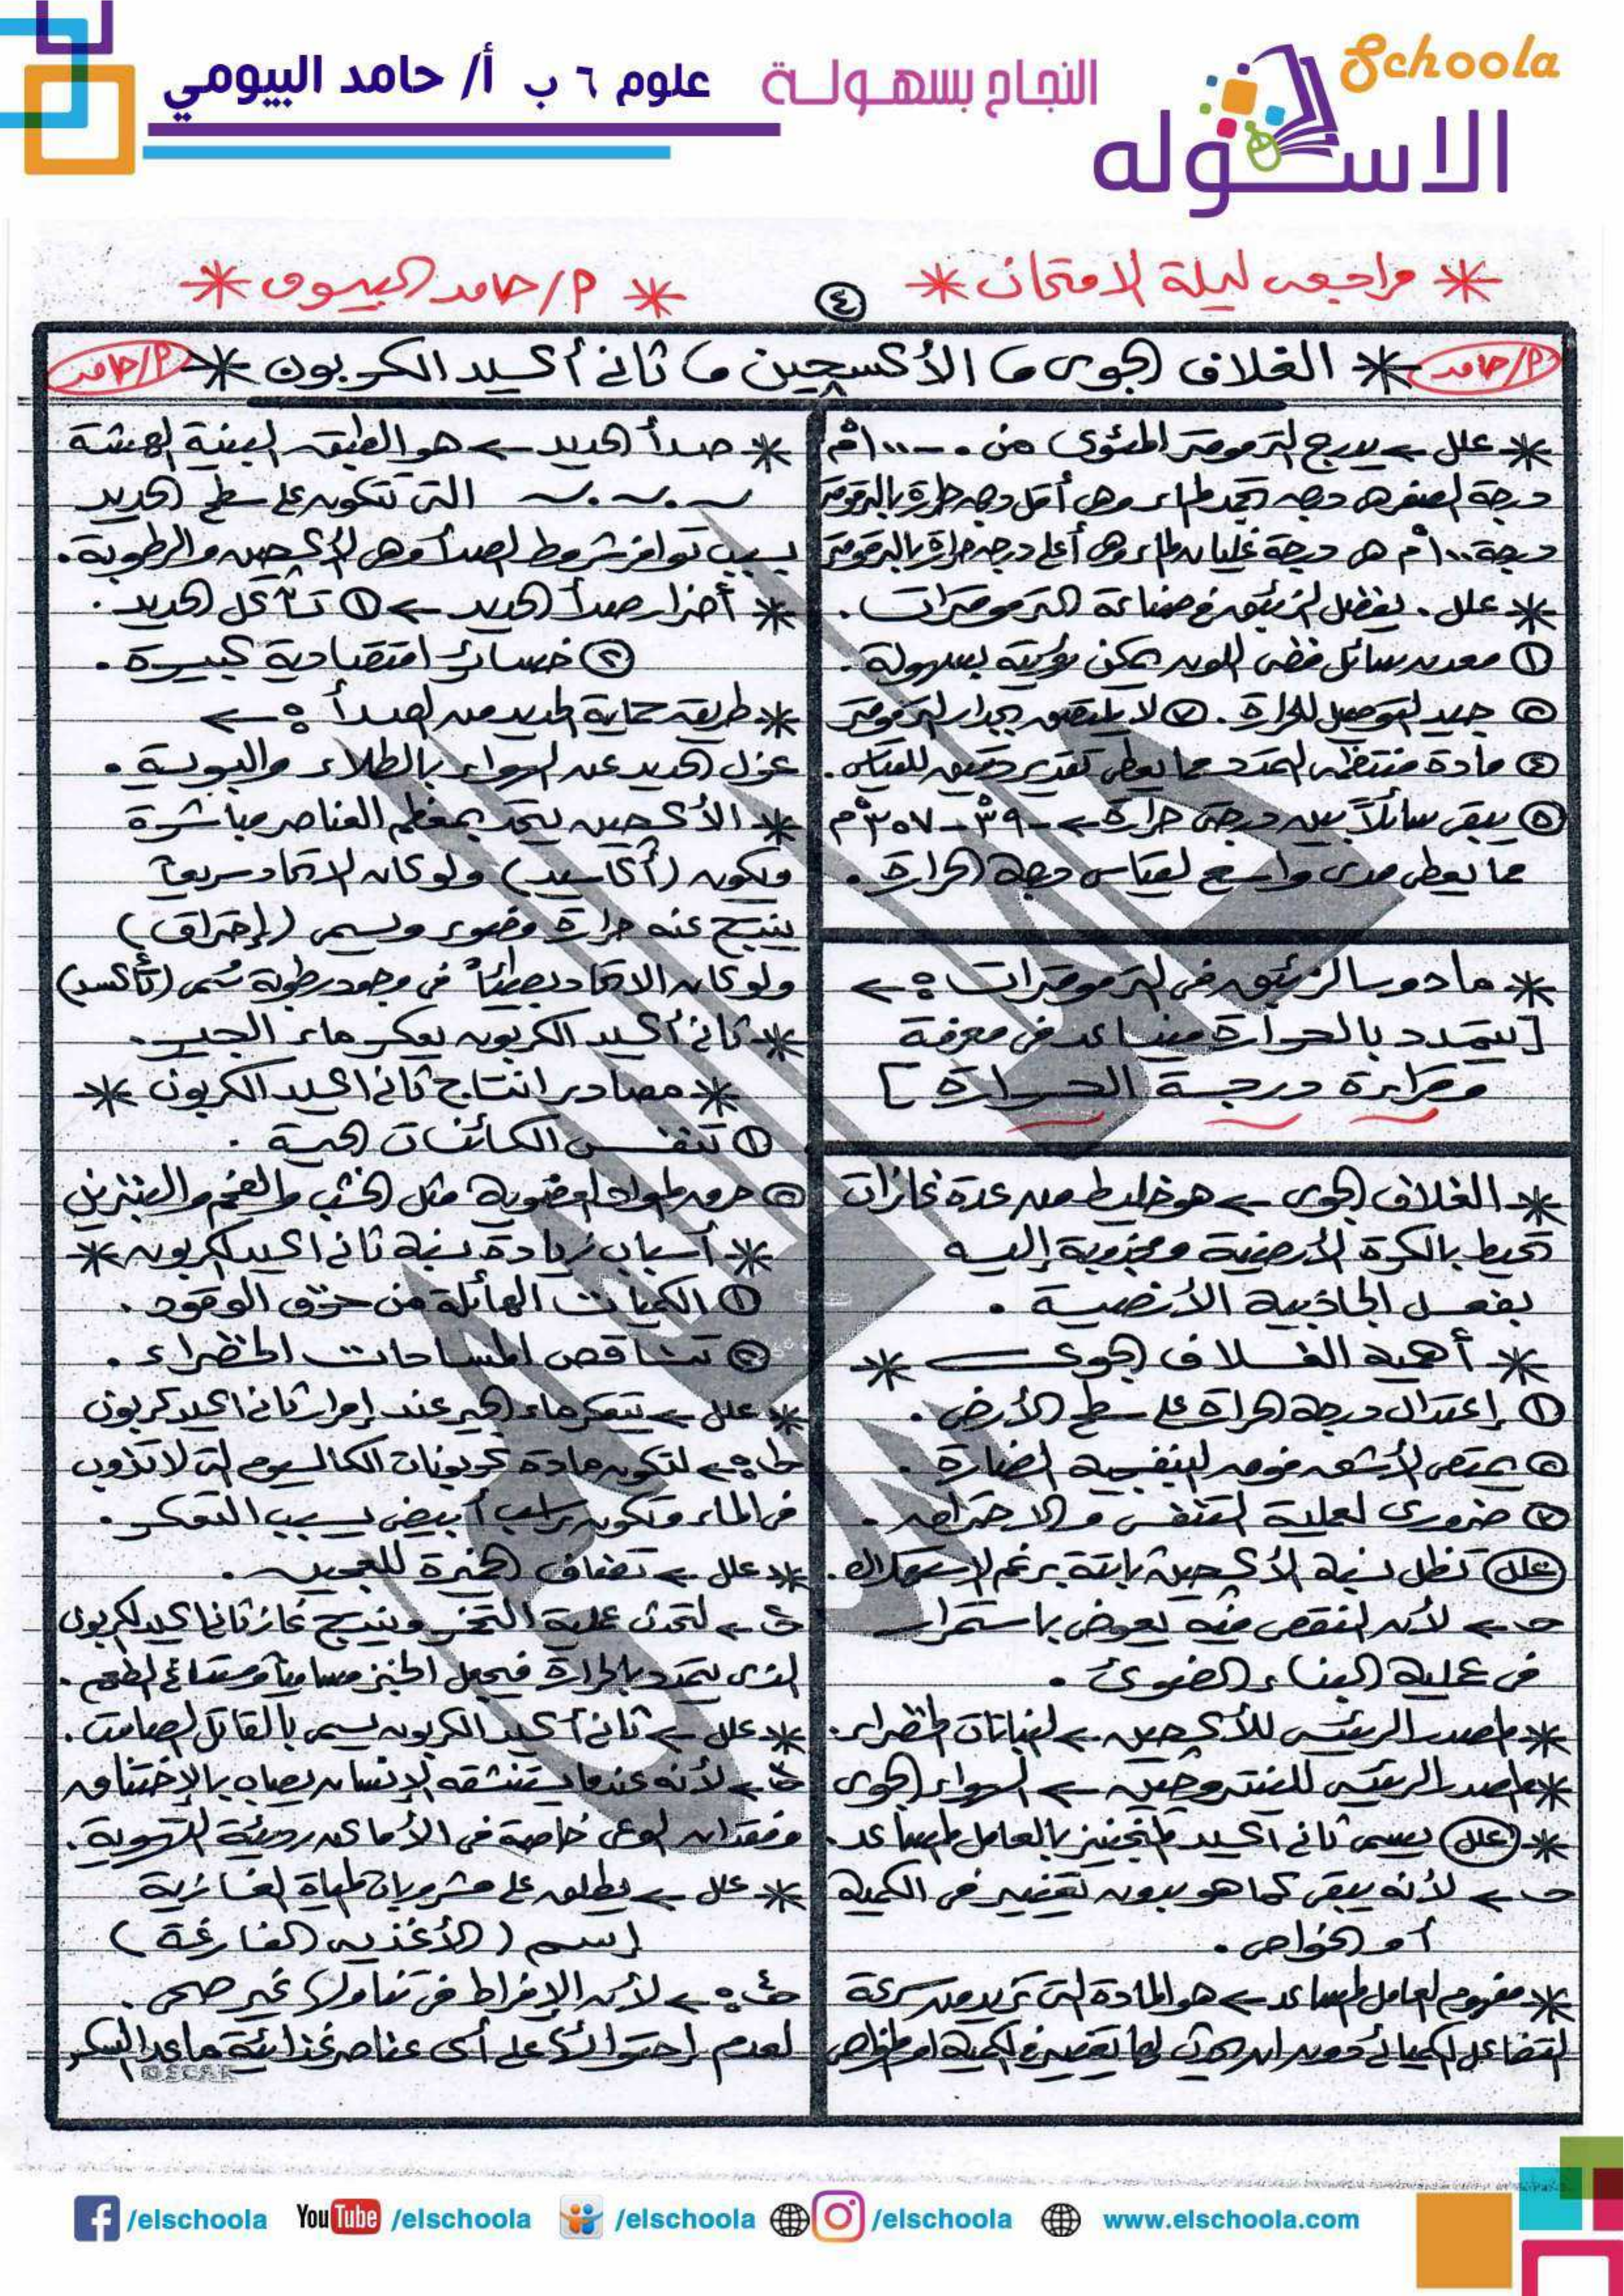 Schoola
الاسكوله
النجاح بسهولة
علوم ٦ ب أ/ حامد البيومي
* مراجعه ليلة الامتحان *
٤
* م/حامد البيومى *
م/حامد
* الغلاف الجوى ما الأكسچين ما ثانى أكسيد الكربون *
م/حامد
* علل ← يدرج الترمومتر المئوى من ٠ - ١٠٠°م
درجة الصفر هى درجه تجمد الماء وهى أقل درجه حرارة بالترمومتر
درجة ١٠٠°م هى درجة غليان الماء وهى أعلى درجه حرارة بالترمومتر
* علل . يفضل الزئبق فى صناعة الترمومترات .
① معدن سائل فضى اللون يمكن رؤيته بسهولة .
② جيد التوصيل للحرارة . ③ لا يلتصق بجدار الترمومتر
④ مادة منتظمه التمدد مما يعطى تقدير دقيق للقياس .
⑤ يبقى سائلاً بين درجتى حرارة ← -٣٩° - ٣٥٧°م
مما يعطى مدى واسع لقياس درجة الحرارة .
* ما دور الزئبق فى الترمومترات : ←
[ يتمدد بالحرارة فيساعد فى معرفة
وقراءة درجة الحرارة ]
* الغلاف الجوى ← هو خليط من عدة غازات
تحيط بالكرة الأرضية ومجذوبة إليه
بفعل الجاذبية الأرضية .
* أهمية الغلاف الجوى *
① إعتدال درجة الحرارة على سطح الأرض .
② يمتص الأشعه فوق البنفسجية الضارة .
③ ضرورى لعملية التنفس والاحتراق .
علل تظل نسبة الأكسچين ثابتة برغم استهلاكه .
جـ ← لأن النقص فيه يعوض باستمرار
فى عملية البناء الضوئى .
* المصدر الرئيسى للأكسچين ← النباتات الخضراء .
* المصدر الرئيسى للنيتروچين ← الهواء الجوى
* علل يسمى ثانى أكسيد المنجنيز بالعامل المساعد .
جـ ← لأنه يبقى كما هو بدون تغيير فى الكمية
أو الخواص .
* مفهوم العامل المساعد ← هو المادة التى تزيد من سرعة
التفاعل الكيميائى دون ان يحدث لها تغيير فى الكمية او الخواص
* صدأ الحديد ← هو الطبقه البنية الهشة
التى تتكون على سطح الحديد
بسبب توافر شروط الصدأ وهى الأكسچين والرطوبة .
* أضرار صدأ الحديد ← ① تآكل الحديد .
② خسائر اقتصادية كبيرة .
* طريقه حماية الحديد من الصدأ : ←
عزل الحديد عن الهواء بالطلاء والبوية .
* الأكسچين يتحد بمعظم العناصر مباشرة
وتكون (أكاسيد) ولو كان الاتحاد سريعاً
ينتج عنه حرارة وضوء ويسمى (إحتراق)
ولو كان الاتحاد بطيئاً فى وجود رطوبة يسمى (تأكسد)
* ثانى أكسيد الكربون يعكر ماء الجير .
* مصادر انتاج ثانى اكسيد الكربون *
① تنفس الكائنات الحية .
② حرق المواد العضوية مثل الخشب والفحم والبنزين
* أسباب زيادة نسبة ثانى اكسيد الكربون *
① الكميات الهائلة من حرق الوقود .
② تناقص المساحات الخضراء .
* علل ← يتعكر ماء الجير عند إمرار ثانى اكسيد كربون
جـ : ← لتكون مادة كربونات الكالسيوم التى لا تذوب
فى الماء وتكون راسب أبيض يسبب التعكر .
* علل ← تضاف الخميرة للعجين .
جـ ← لتحدث عملية التخمر وينتج غاز ثانى اكسيد الكربون
الذى يتمدد بالحرارة فيجعل الخبز مسامياً ومستساغ الطعم .
* علل ← ثانى أكسيد الكربون يسمى بالقاتل الصامت .
جـ ← لأنه عندما يستنشقه الإنسان يصاب بالإختناق
وفقدان الوعى خاصة فى الأماكن رديئة التهوية .
* علل ← يطلق على مشروبات المياة الغازية
إسم ( الأغذيه الفارغة )
جـ : ← لأن الإفراط فى تناولها غير صحى .
لعدم إحتوائها على أى عناصر غذائية ماعدا السكر
OSCAR
/elschoola YouTube /elschoola /elschoola /elschoola www.elschoola.com